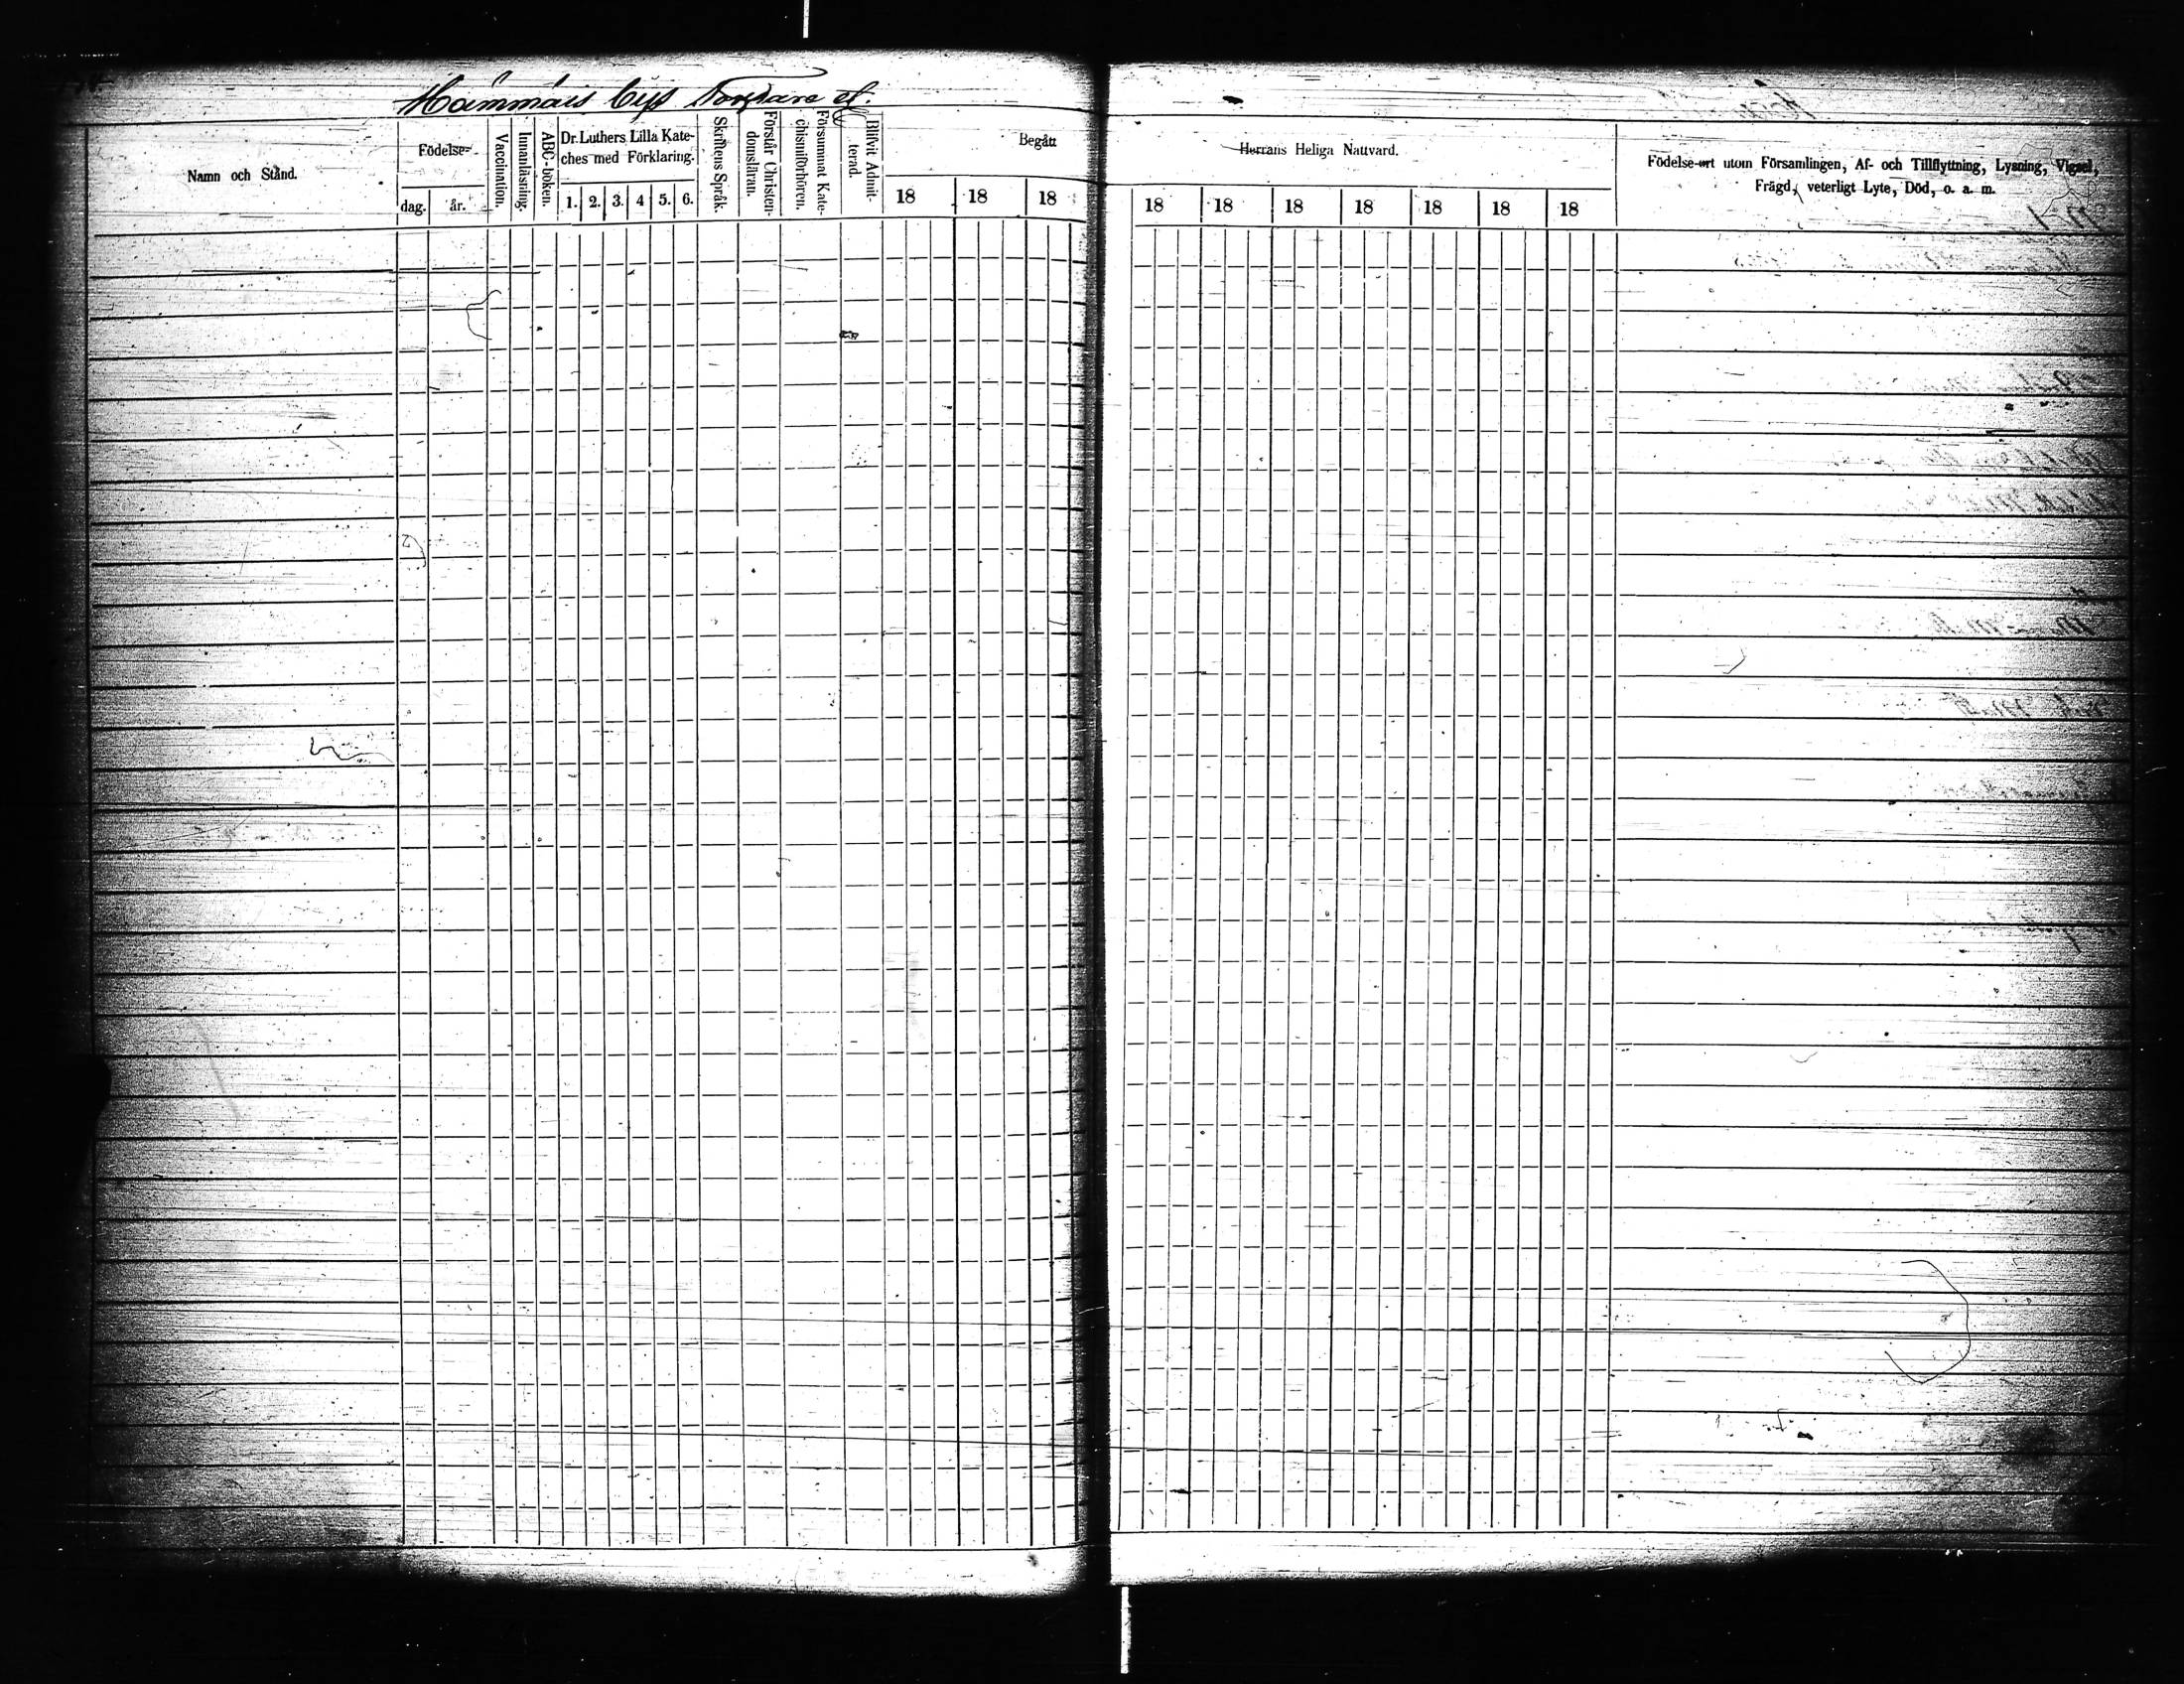 Hammars bys Torpare
Namn och Stånd.
Födelse-
dag. år.
Vaccination.
Innanläsning.
ABC-boken.
Dr. Luthers Lilla Kate-
ches med Förklaring.
1. 2. 3. 4 5. 6.
Skriftens Språk.
Förstår Christen-
domsläran.
Försummat Kate-
chismiförhören.
Blifvit Admit-
terad.
Begått
18 18 18
Herrans Heliga Nattvard.
18 18 18 18 18 18 18
Födelse-ort utom Församlingen, Af- och Tillflyttning, Lysning, Vigsel,
Frägd, veterligt Lyte, Död, o. a. m.